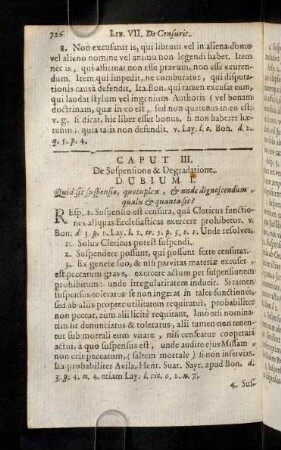 726 LIB. VII. De Censuris.
8. Non excusatur is, qui librum vel in aliena domo,
vel alieno nomine vel animo non legendi habet. Item
nec is, qui æstimat non esse pravum, non esse exuren-
dum. Item qui impedit, ne comburatur, qui disputa-
tionis causâ defendit. Ita Bon. qui tamen excusat eum,
qui laudat stylum vel ingenium Authoris (vel bonam
doctrinam, quæ in eo est) modo non tueatur in eo est;
v. g. si dicat, hic liber esset bonus, si non haberet hæ-
resin; quia talis non defendit. v. Lay. l. c. Bon. d. 2.
q. 5. p. 4.
CAPUT III.
De Suspensione & Degradatione.
DUBIUM I.
Quid sit suspensio, quotuplex, & unde dignoscendum
qualis & quanta sit?
RESp. 1. Suspensio est censura, quâ Clericus functio-
nes aliquas Ecclesiasticas exercere prohibetur. v.
Bon. d. 3. p. 1. Lay. l. 1. tr. 5. p. 5. c. 2. Unde resolves.
1. Solus Clericus potest suspendi.
2. Suspendere possunt, qui possunt ferre censuras.
3. Ex genere suo, & nisi parvitas materiæ excuset,
est peccatum grave, exercere actum per suspensionem
prohibitum: unde irregularitatem inducit. Si tamen
suspensus toleratus se non ingerat in tales functiones,
sed ab aliis propter utilitatem requiratur, probabiliter
non peccat, cum alii licitè requirant. Imò etsi nomina-
tim sit denunciatus & toleratus, alii tamen non tenen-
tur sub mortali eum vitare, nisi censeatur cooperari
actui, à quo suspensus est, unde audire ejus Missam
non erit peccatum, (saltem mortale) si non inservias.
Ita probabiliter Avila, Henr. Suar. Sayr. apud Bon. d.
3. q. 4. n. 4. etiam Lay. l. cit. c. 2. n. 7.
4. Sus-